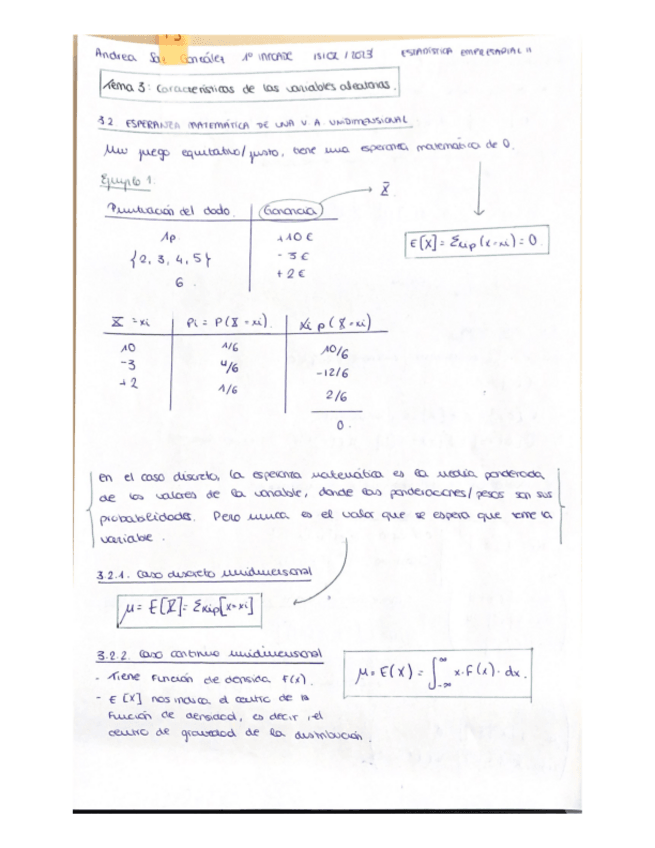 Andrea González 1º 15/02/2023 ESTADÍSTICA EMPRESARIAL II
Tema 3: Características de las variables aleatorias.
3.2 ESPERANZA MATEMÁTICA DE UNA V.A. UNIDIMENSIONAL
Un juego equitativo/justo, tiene una esperanza matemática de 0.
Ejemplo 1.
X
Puntuación del dado. Ganancia
1p +10€
{2, 3, 4, 5} -3€
6. +2€
E[X] = Σxip(x=xi) = 0.
X = xi Pi = P(X=xi). Xi p(X=xi)
10 1/6 10/6
-3 4/6 -12/6
+2 1/6 2/6
0.
en el caso discreto, la esperanza matemática es la media ponderada
de los valores de la variable, donde las ponderaciones/pesos son sus
probabilidades. Pero nunca es el valor que se espera que tome la
variable.
3.2.1. Caso discreto unidimensional
μ = E[X] = Σxip[x=xi]
3.2.2. Caso continuo unidimensional
- Tiene función de densida f(x).
- E[X] nos indica el centro de la
función de densidad, es decir, el
centro de gravedad de la distribución.
μ = E(X) = ∫_{-∞}^{∞} x·f(x)·dx.